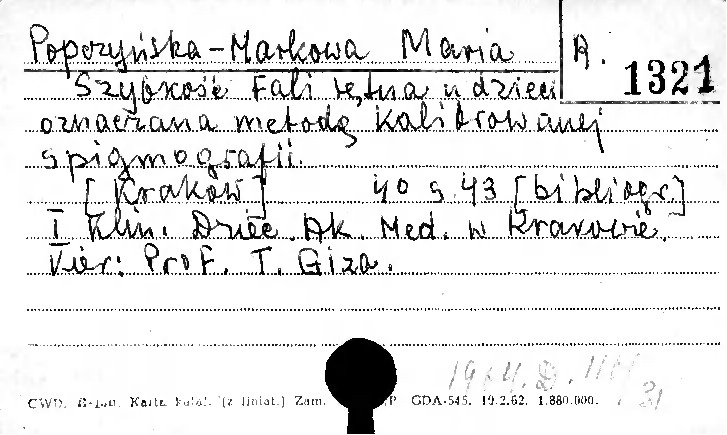 Popczyńska-Markowa Maria
R. 1321
Szybkość fali tętna u dzieci
oznaczana metodą kalibrowanej
spigmografii.
[Kraków] 40 s. 43 [bibliogr]
I Klin. Dziec. Ak. Med. w Krakowie.
Kier: Prof. T. Giza.
1964.D.
31
CWD. Karta katal. (z liniat.) Zam. GDA-545. 19.2.62. 1.880.000.